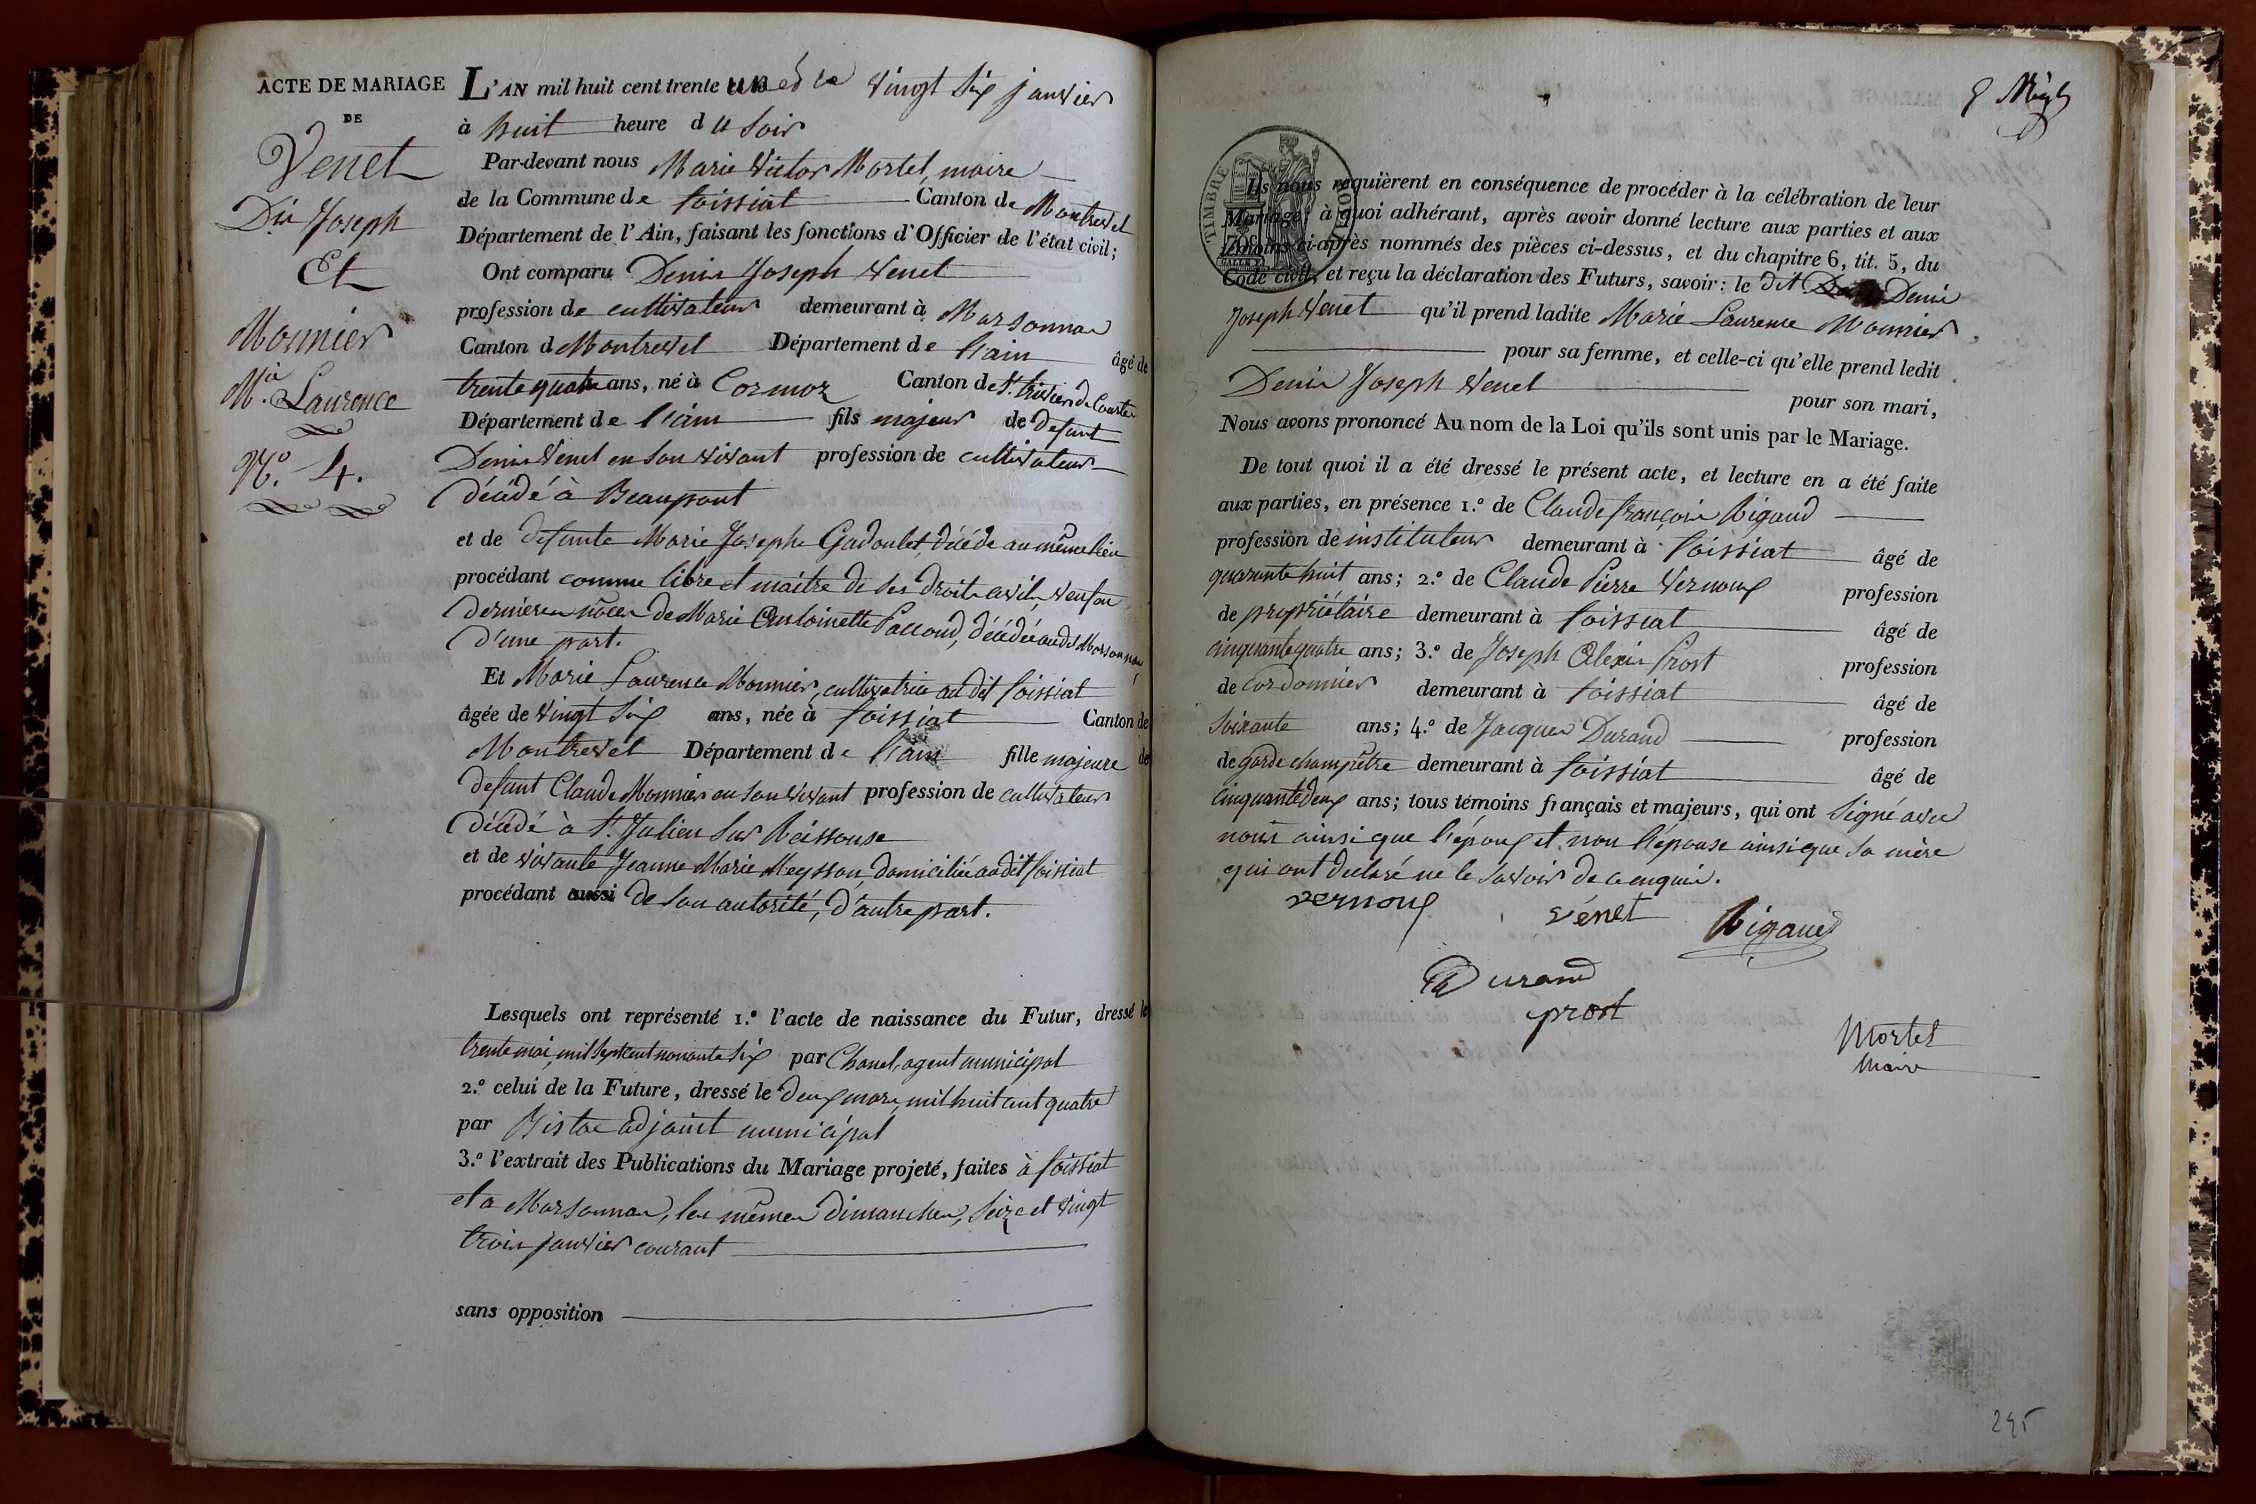 ACTE DE MARIAGE
DE
Venet
Dis Joseph
Et
Monnier
M.ie Laurence
N.o 4.
L'AN mil huit cent trente un et le vingt six janvier
à huit heure du soir
Par-devant nous Marie Victor Mortel, maire
de la Commune de foissiat Canton de Montrevel
Département de l'Ain, faisant les fonctions d'Officier de l'état civil;
Ont comparu Denis Joseph Venet
profession de cultivateur demeurant à Marsonnas
Canton de Montrevel Département de l'ain âgé de
trente quatre ans, né à Cormoz Canton de St. trivier de Courtes
Département de l'ain fils majeur de defunt
Denis Venet en son vivant profession de cultivateur
décédé à Beaupont
et de defunte Marie Josephe Gadoulet, décédé au même lieu
procédant comme libre et maitre de ses droits civils, veuf en
dernieres nôces de Marie Antoinette Paccoud, décédée audit Marsonnas
d'une part.
Et Marie Laurence Monnier, cultivatrice au dit foissiat
âgée de vingt six ans, née à foissiat Canton de
Montrevel Département de l'ain fille majeure de
defunt Claude Monnier en son vivant profession de cultivateur
décédé à St. Julien sur Reissouse
et de vivante Jeanne Marie Meysson, domiciliée au dit foissiat
procédant aussi de son autorité, d'autre part.
Lesquels ont représenté 1.o l'acte de naissance du Futur, dressé le
trente mai, mil sept cent nonante six par Chanel, agent municipal
2.o celui de la Future, dressé le deux mars, mil huit cent quatre
par Bistac adjoint municipal
3.o l'extrait des Publications du Mariage projeté, faites à foissiat
et a Marsonnas, les mêmes dimanches, seize et vingt
trois janvier courant
sans opposition
TIMBRE ROYAL
Ils nous requièrent en conséquence de procéder à la célébration de leur
Mariage; à quoi adhérant, après avoir donné lecture aux parties et aux
Témoins ci-après nommés des pièces ci-dessus, et du chapitre 6, tit. 5, du
Code civil, et reçu la déclaration des Futurs, savoir: le dit Denis
Joseph Venet qu'il prend ladite Marie Laurence Monnier
pour sa femme, et celle-ci qu'elle prend ledit
Denis Joseph Venet pour son mari,
Nous avons prononcé Au nom de la Loi qu'ils sont unis par le Mariage.
De tout quoi il a été dressé le présent acte, et lecture en a été faite
aux parties, en présence 1.o de Claude françois Rigaud
profession de instituteur demeurant à foissiat âgé de
quarante huit ans; 2.o de Claude Pierre Vernoux profession
de propriétaire demeurant à foissiat âgé de
cinquante quatre ans; 3.o de Joseph Alexis Prost profession
de cordonnier demeurant à foissiat âgé de
soixante ans; 4.o de Jacques Durand profession
de garde champêtre demeurant à foissiat âgé de
cinquante deux ans; tous témoins français et majeurs, qui ont signé avec
nous ainsi que l'époux et non l'épouse ainsi que sa mère
qui ont declaré ne le savoir de ce enquis.
vernoux vénet Rigaud
Durand
prost
Mortel
Maire
295